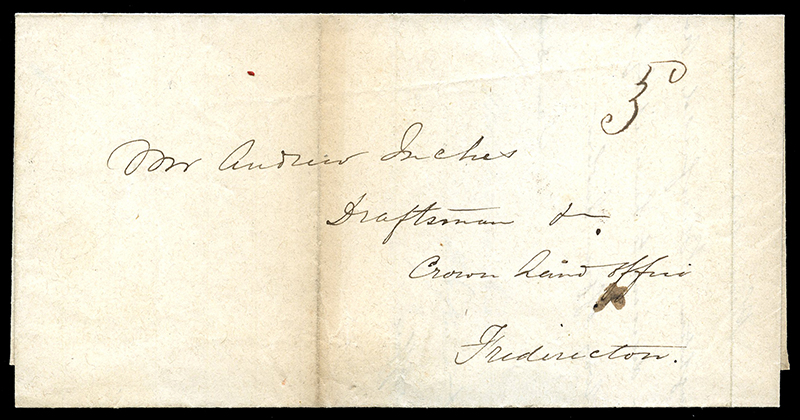 5
Mr Andrew Inches
Draftsman &
Crown Land Office
Fredericton.